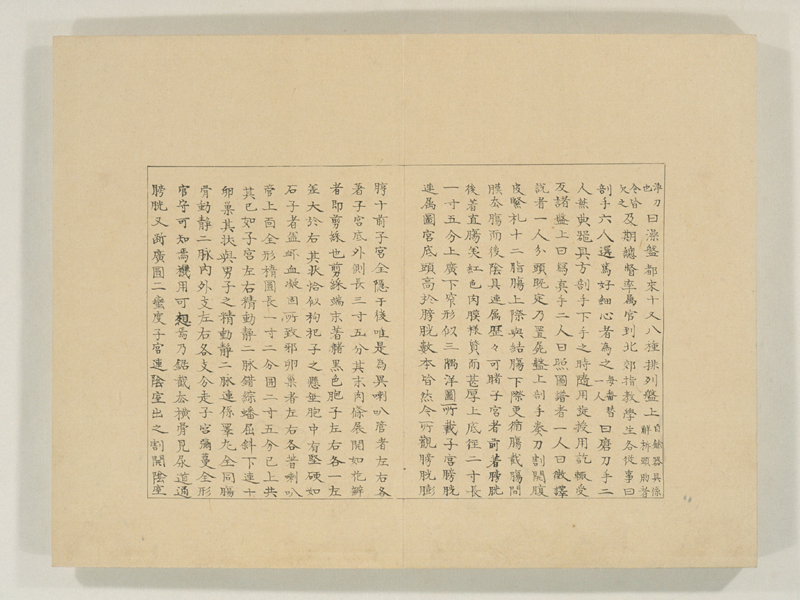 淨刀曰澡盤都來十又八種排列盤上
也
今皆
欠之及期總督率属官到北郊指教學生各從事曰
剖手六人選爲好細心者爲之一人曰磨刀手二
人兼典器具方剖手下手之時隨用旋授用訖輙受
及諸盤上曰寫真手二人曰照圖譜者一人曰徵譯
說者一人分頭既定乃置屍盤上剖手奏刀割開腹
皮緊札十二脂腸上際與結腸下際更衛腸截腸開
膜去腸而後陰具連属歷々可睹子宮者前著膀胱
後著直腸笑紅色肉膜樣質而甚厚上底徑二寸長
一寸五分上廣下窄形似三隅洋圖所載子宮膀胱
連属圖宮底頭高於膀胱數本皆然今所觀膀胱膨
脝十前子宮全隱于後唯是爲異喇叭管者左右各
著子宮底外側長三寸五分其末肉條展開如花瓣
者即剪綵也剪綵端末著赭黑色胞子左右各一左
差大於右其狀恰似枸杞子之懸虛胞中有堅硬如
石子者蓋瘀血凝固所致邪卵巢者左右各著喇叭
管上面全形橢圓長一寸二分圍二寸五分已上共
其已如子宮左右精動靜二脉錯綜蟠屈斜下連十
卵巢其狀與男子之精動靜二脉連係睪丸全同腸
骨動靜二脉内外支左右各支分走子宮彌蔓全形
官守可知焉機用可想焉乃鋸截去橫骨見尿道通
膀胱又斷廣圓二蠻度子宮連陰室出之割開陰室